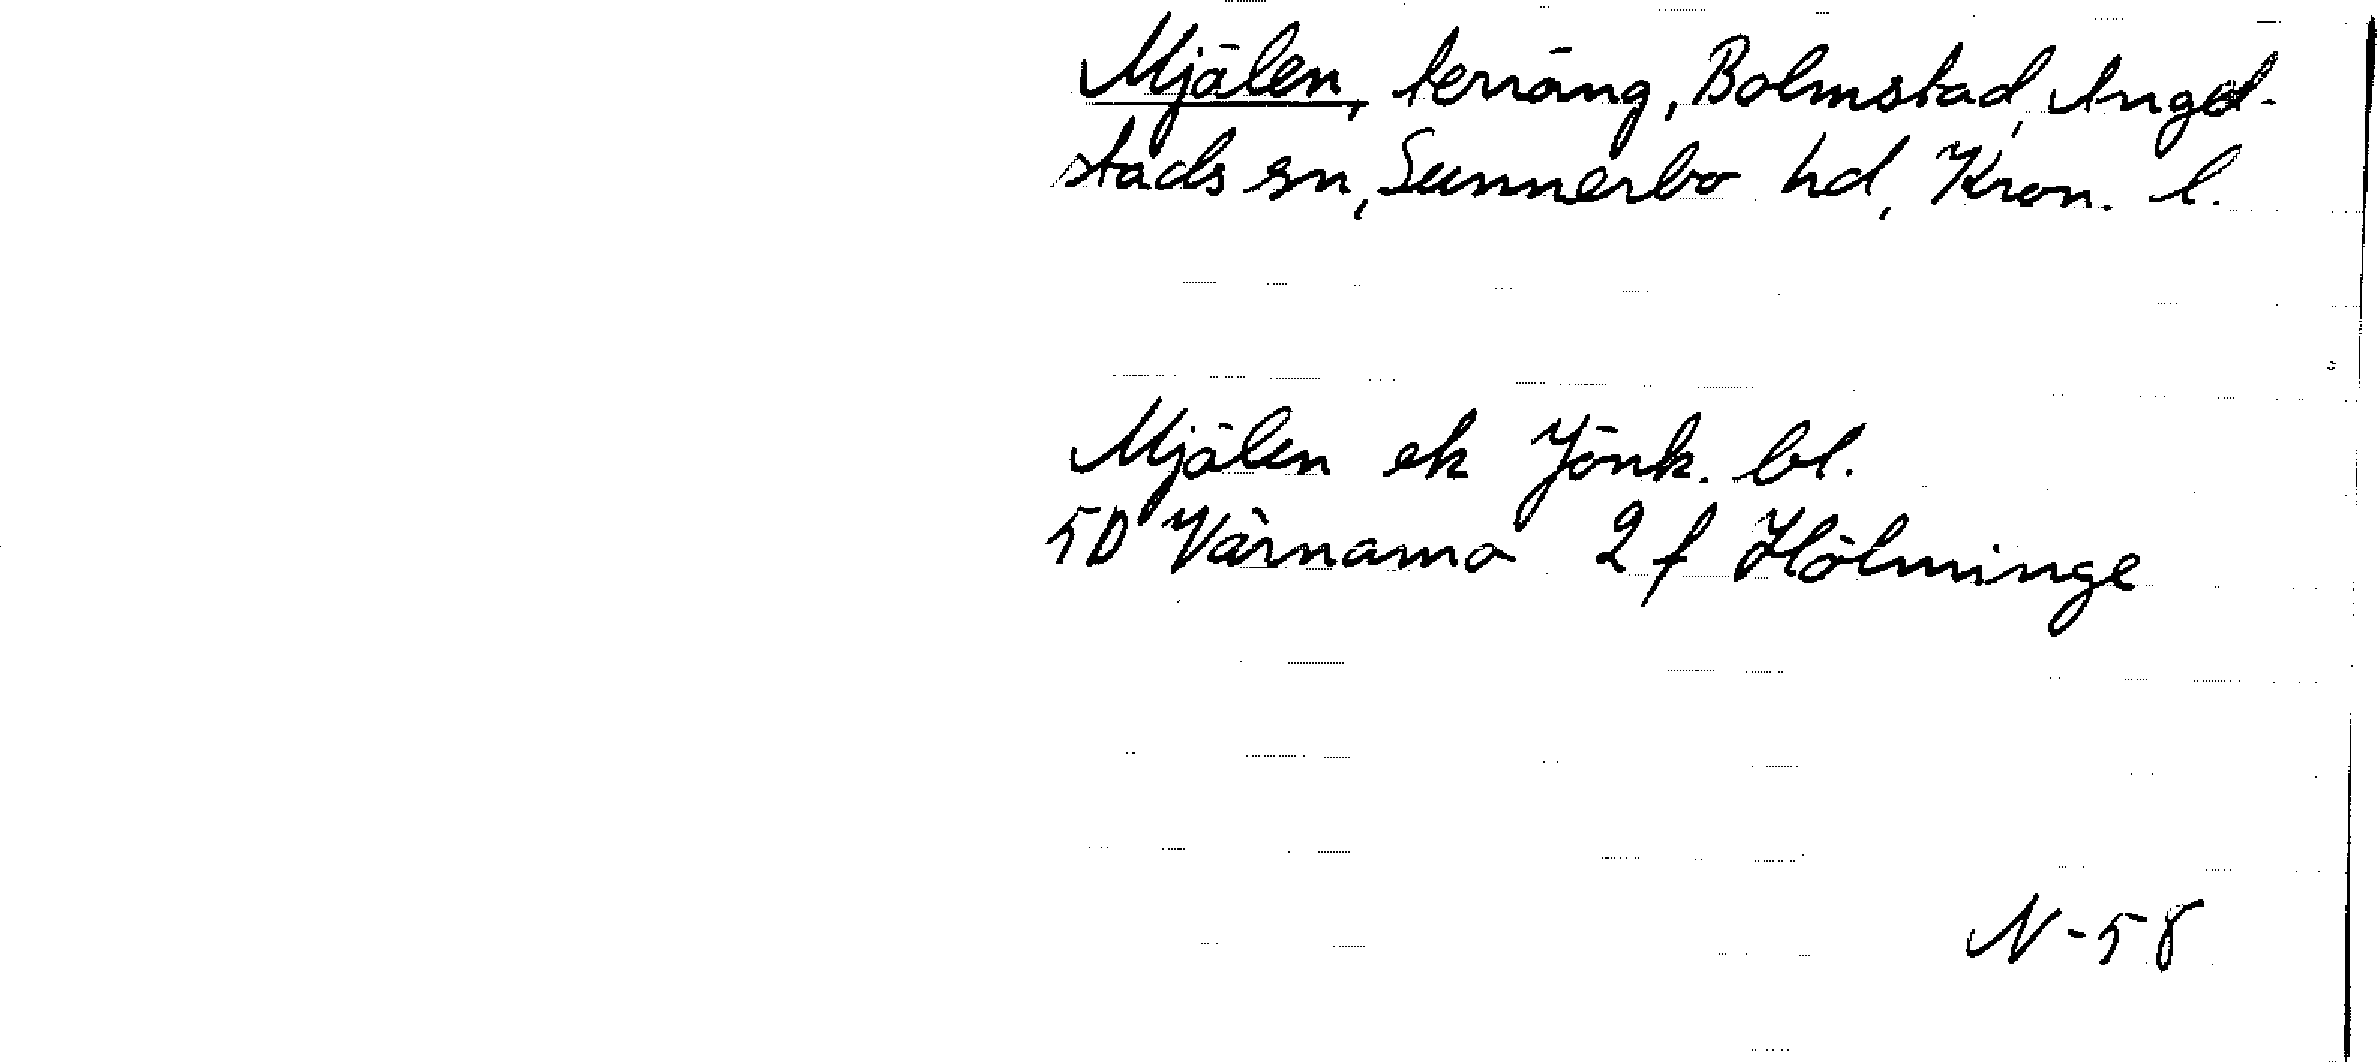 Mjälen, terräng, Bolmstad, Angel-
stads sn, Sunnerbo hd, Kron. l.
Mjälen ek Jönk. bl.
5D Värnamo 2 f Hölminge
N-58